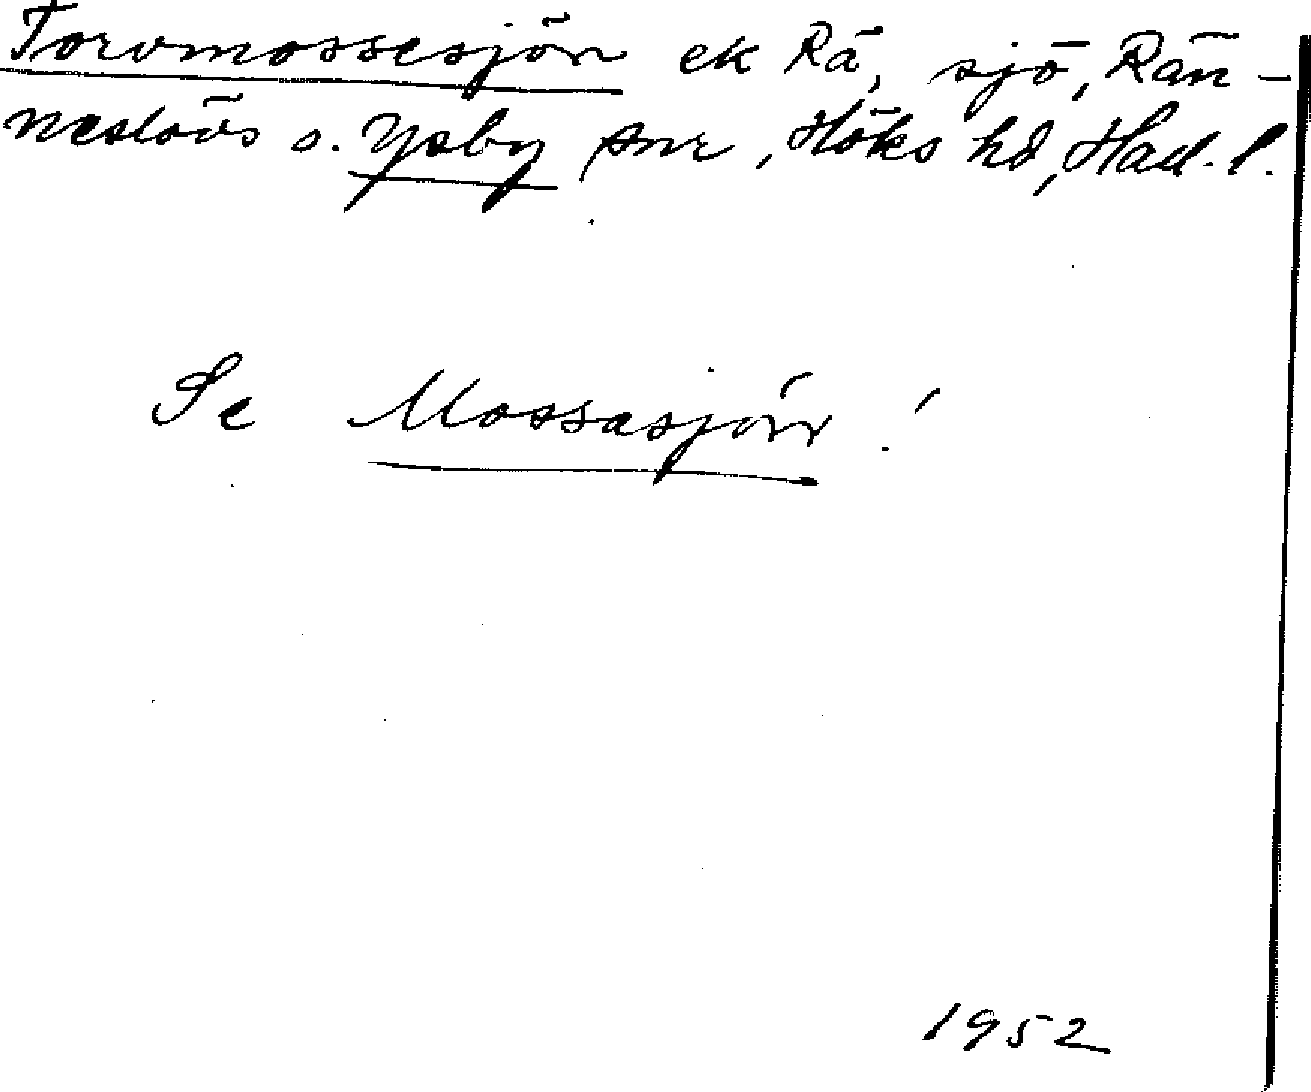 Torvmossesjön ek Rä, sjö, Rän-
neslövs o. Ysby snr, Höks hd, Hall. l.
Se Mossasjön!
1952